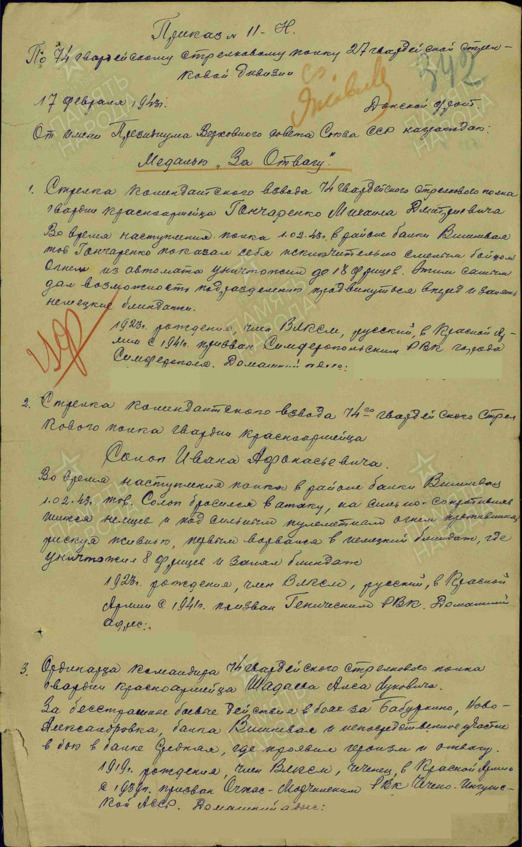 Приказ № 11-Н.
По 74 гвардейскому стрелковому полку 27 гвардейской стрел-
ковой дивизии
342
17 февраля 1943г. Донской фронт
От имени Президиума Верховного Совета Союза ССР награждаю:
Медалью „За Отвагу"
1. Стрелка комендантского взвода 74 гвардейского стрелкового полка
гвардии красноармейца Гончаренко Михаила Дмитриевича
Во время наступления полка 1.02.43г. в районе балки Вишневая
тов Гончаренко показал себя исключительно смелым бойцом
Огнем из автомата уничтожил до 18 фрицев. Этим самым
дал возможность подразделению продвинуться вперед и занять
немецкие блиндажи.
1923г. рождения, член ВЛКСМ, русский, в Красной Ар-
мии с 1941г. призван Симферопольским РВК города
Симферополя. Домашний
2. Стрелка комендантского взвода 74го гвардейского Стрел
кового полка гвардии красноармейца
Солоп Ивана Афонасьевича.
Во время наступления полка в районе балки Вишневой
1.02.43г. тов. Солоп бросился в атаку, на сильно-сопротивляв
шихся немцев и под сильным пулеметным огнем противника,
рискуя жизнью, первым ворвался в немецкий блиндаж, где
уничтожил 8 фрицев и занял блиндаж
1923г. рождения, член ВЛКСМ, русский, в Красной
Армии с 1941г. призван Геническим РВК. Домашний
адрес:
3. Ординарца командира 74 гвардейского стрелкового полка
гвардии красноармейца Шадаева
За бесстрашные боевые действия в боях за Бабуркино, Ново-
Александровка, балка Вишневая и непосредственное участие
в бою в балке Средная, где проявил героизм и отвагу.
1919г. рождения, член ВЛКСМ, чеченец, в Красной Армии
с 1939г. призван РВК Чечено-Ингушс-
кой АССР. Домашний адрес:
ПАМЯТЬ НАРОДА